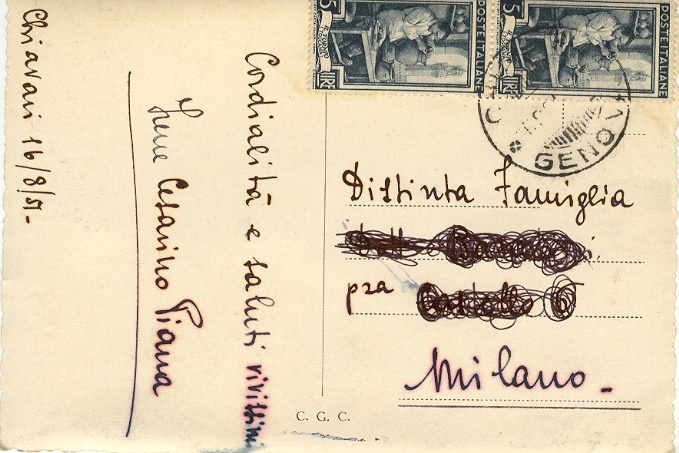 Chiavari 16/8/51-
Cordialità e saluti vivissimi
Irene Cesarino Piana
POSTE ITALIANE
LIRE 5
POSTE ITALIANE
LIRE 5
GENOVA
Distinta Famiglia
pza
Milano.-
C. G. C.